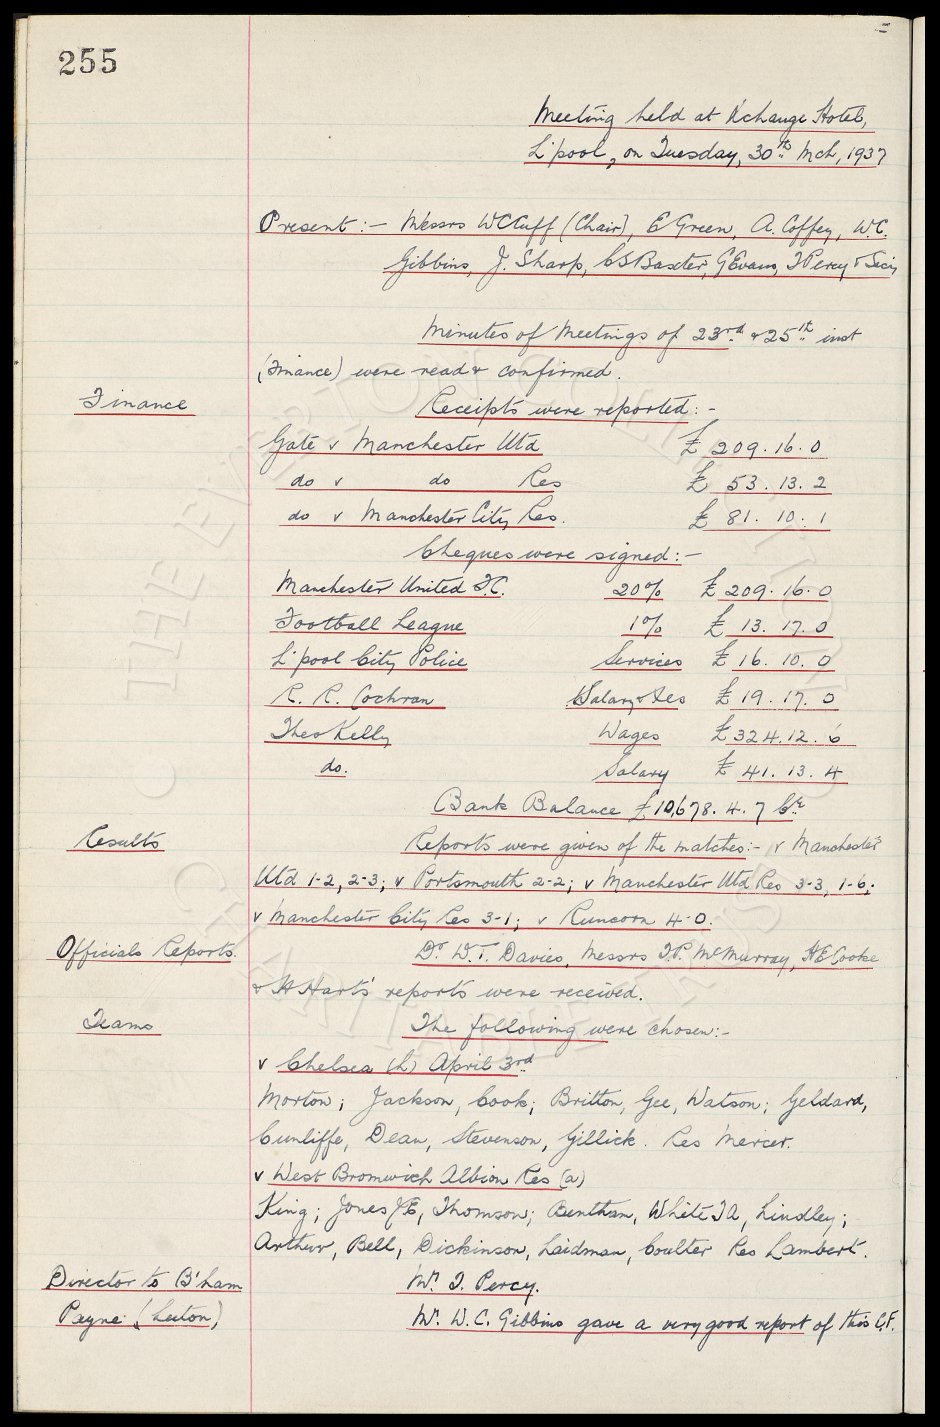 255
Meeting held at X'change Hotel,
L'pool, on Tuesday, 30th Mch, 1937
Present :- Messrs W C Cuff (Chair), E Green, A. Coffey, W.C.
Gibbins, J. Sharp, C S Baxter, G Evans, T Percy & Secy
Minutes of Meetings of 23rd & 25th inst
(Finance) were read & confirmed.
Finance
Receipts were reported :-
Gate v Manchester Utd £ 209. 16. 0
do v do Res £ 53. 13. 2
do v Manchester City Res. £ 81. 10. 1
Cheques were signed :-
Manchester United F.C. 20% £ 209. 16. 0
Football League 1% £ 13. 17. 0
L'pool City Police Services £ 16. 10. 0
R. R. Cochran Salary & Fes £ 19. 17. 0
Theo Kelly Wages £ 324. 12. 6
do. Salary £ 41. 13. 4
Bank Balance £10,678. 4. 7 Cr.
Results
Reports were given of the matches :- v Manchester
Utd 1-2, 2-3; v Portsmouth 2-2; v Manchester Utd Res 3-3, 1-6;
v Manchester City Res 3-1; v Runcorn 4-0.
Officials Reports.
Dr. W. T. Davies, Messrs T.P. McMurray, H E Cooke
& H Harts' reports were received.
Teams
The following were chosen :-
v Chelsea (h) April 3rd
Morton; Jackson, Cook; Britton, Gee, Watson; Geldard,
Cunliffe, Dean, Stevenson, Gillick. Res Mercer.
v West Bromwich Albion Res (a)
King; Jones J E, Thomson; Bentham, White T A, Lindley;
Arthur, Bell, Dickinson, Laidman, Coulter Res Lambert.
Director to B'ham
Mr. T. Percy.
Payne (Luton)
Mr. W. C. Gibbins gave a very good report of this C.F.
THE EVERTON COLLECTION
CHARITABLE TRUST